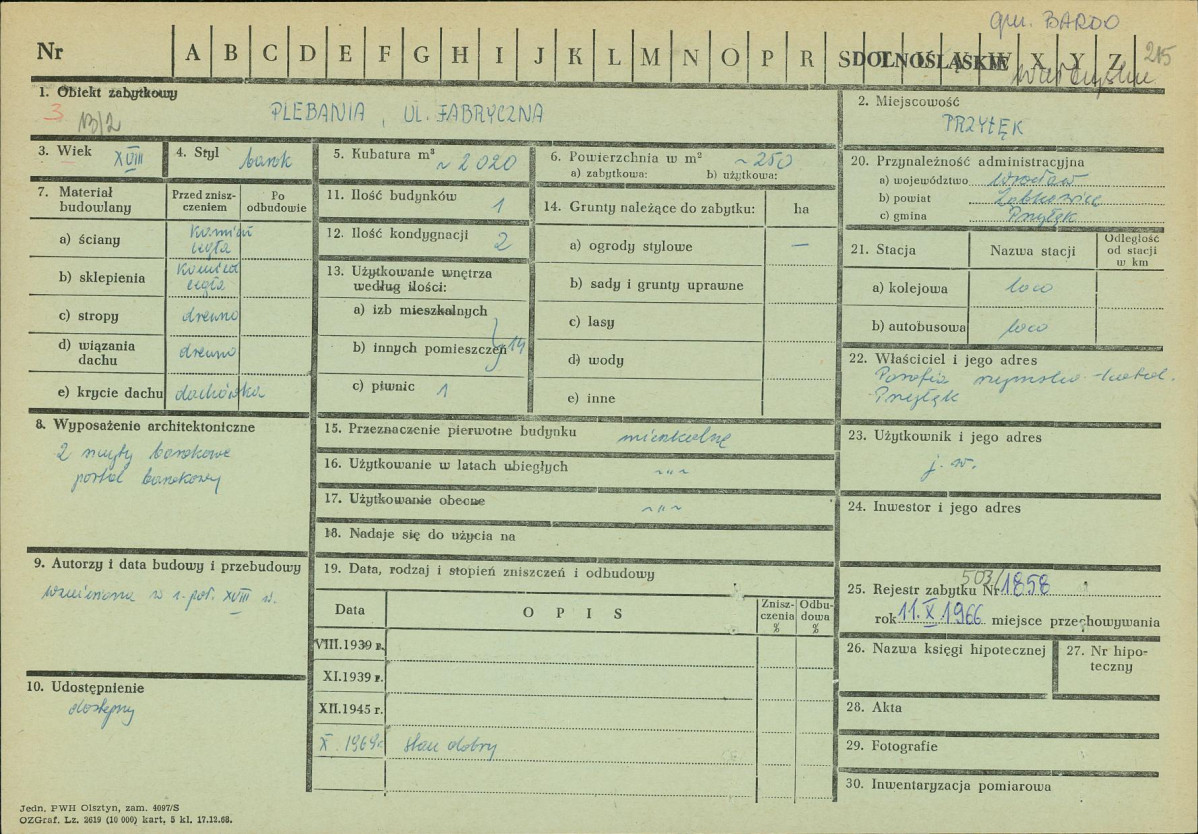 gm. BARDO
Nr A B C D E F G H I J K L M N O P R S DOLNOŚLĄSKIE X Y Z 215
1. Obiekt zabytkowy
3 13/2
PLEBANIA, UL. FABRYCZNA
2. Miejscowość
PRZYŁĘK
3. Wiek XVIII
4. Styl barok
5. Kubatura m³ ~ 2020
6. Powierzchnia w m² ~ 250
a) zabytkowa: b) użytkowa:
7. Materiał budowlany
Przed znisz-
czeniem
Po
odbudowie
a) ściany kamień
cegła
b) sklepienia kamień
cegła
c) stropy drewno
d) wiązania
dachu drewno
e) krycie dachu dachówka
8. Wyposażenie architektoniczne
2 barokowe
portal barokowy
9. Autorzy i data budowy i przebudowy
wzniesiona w 1. poł. XVIII w.
10. Udostępnienie
dostępny
11. Ilość budynków 1
12. Ilość kondygnacji 2
13. Użytkowanie wnętrza
według ilości:
a) izb mieszkalnych
b) innych pomieszczeń } 14
c) piwnic 1
14. Grunty należące do zabytku: ha
a) ogrody stylowe —
b) sady i grunty uprawne
c) lasy
d) wody
e) inne
15. Przeznaczenie pierwotne budynku mieszkalne
16. Użytkowanie w latach ubiegłych ~ " ~
17. Użytkowanie obecne ~ " ~
18. Nadaje się do użycia na
19. Data, rodzaj i stopień zniszczeń i odbudowy
Data
O P I S
Znisz-
czenia
%
Odbu-
dowa
%
VIII.1939 r.
XI.1939 r.
XII.1945 r.
X. 1969 r. stan dobry
20. Przynależność administracyjna
a) województwo Wrocław
b) powiat Ząbkowice
c) gmina Przyłęk
21. Stacja
Nazwa stacji
Odległość
od stacji
w km
a) kolejowa loco
b) autobusowa loco
22. Właściciel i jego adres
Parafia rzymsko-katol.
Przyłęk
23. Użytkownik i jego adres
j. w.
24. Inwestor i jego adres
25. Rejestr zabytku Nr 503/1858
rok 11.X.1966 miejsce przechowywania
26. Nazwa księgi hipotecznej
27. Nr hipo-
teczny
28. Akta
29. Fotografie
30. Inwentaryzacja pomiarowa
Jedn. PWH Olsztyn, zam. 4097/S
OZGraf. Lz. 2619 (10 000) kart, 5 kl. 17.12.68.